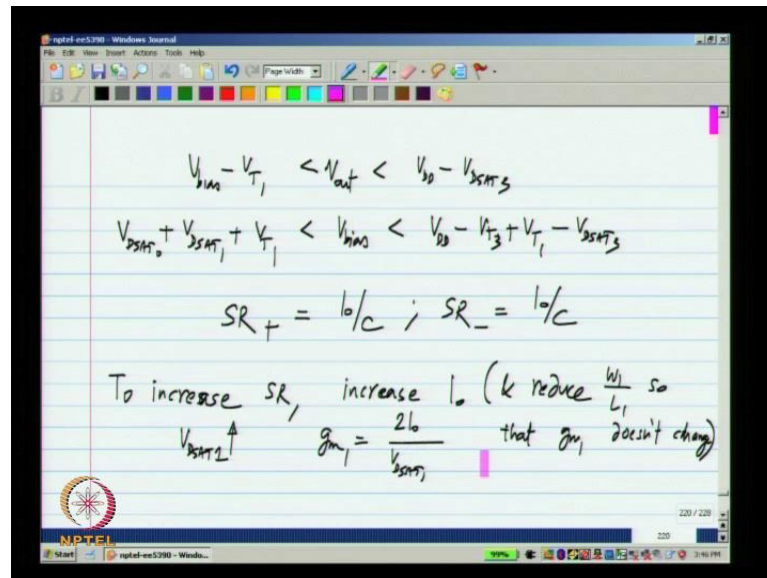 nptel-ee5390 - Windows Journal
File Edit View Insert Actions Tools Help
Page Width
B I
V_bias - V_T1 < V_out < V_DD - V_DSAT3
V_DSAT0 + V_DSAT1 + V_T1 < V_bias < V_DD - V_T3 + V_T1 - V_DSAT3
SR+ = I0/C ; SR- = I0/C
To increase SR, increase I0 (& reduce W1/L1 so
V_DSAT1 ↑ g_m1 = 2I0/V_DSAT1 that g_m1 doesn't change)
220 / 228
220
NPTEL
Start nptel-ee5390 - Windo... 99% 3:46 PM